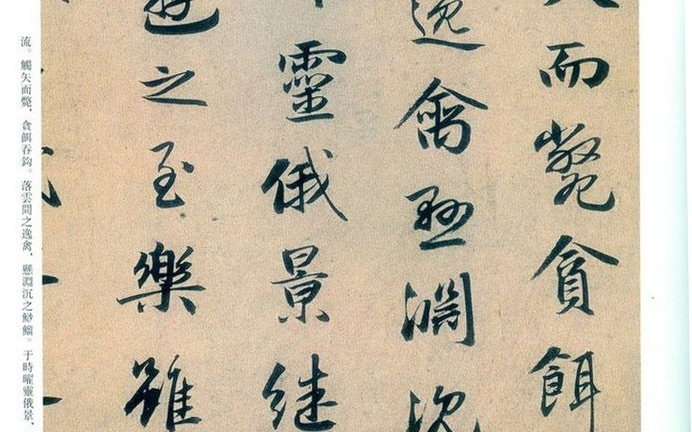 而斃貪餌
逸禽懸淵沉
靈俄景繼
遊之至樂雖
流。觸矢而斃，貪餌吞鈎。落雲間之逸禽，懸淵沉之魦鰡。于時曜靈俄景，